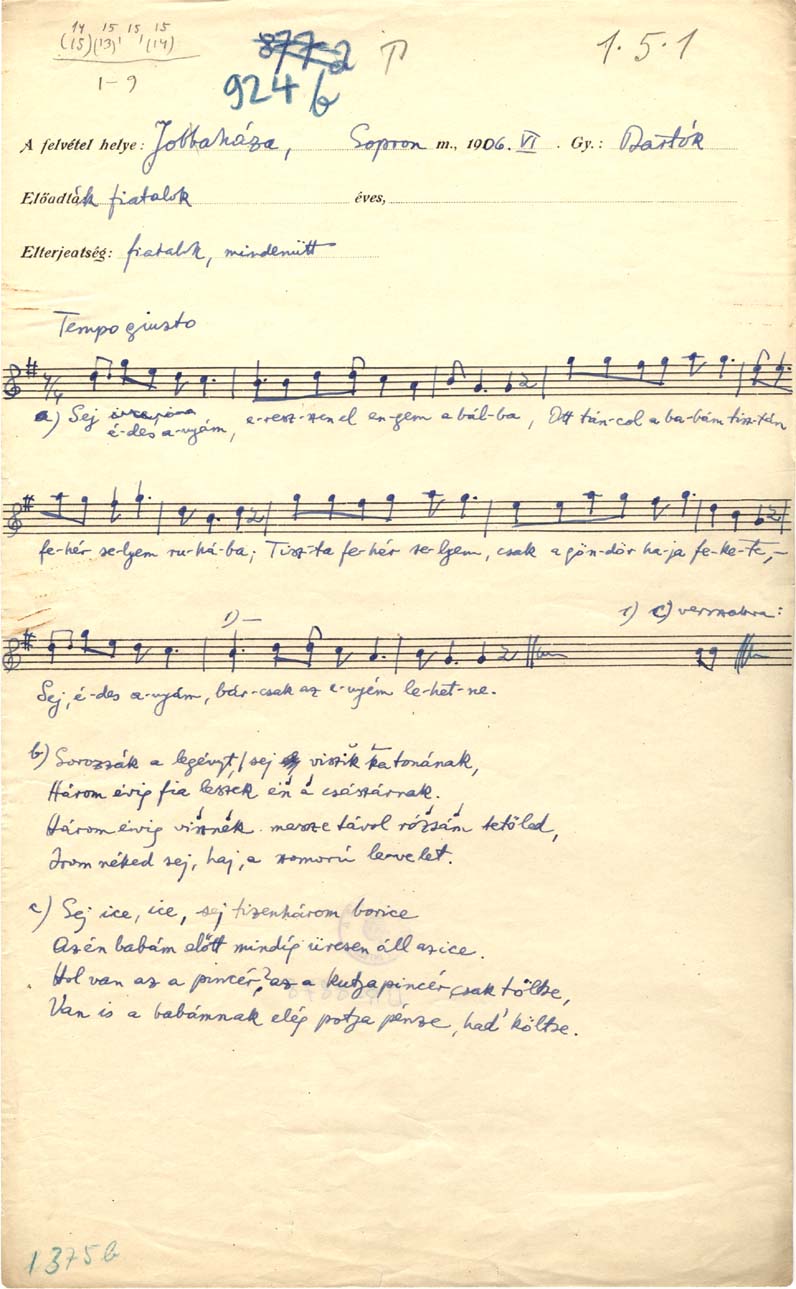 14 15 15 15
(15)(13) (14)
1-9
877a
924b
T
1.5.1
A felvétel helye: Jobbaháza, Sopron m., 1906. VI. Gy.: Bartók
Előadták fiatalok éves,
Elterjeatség: fiatalok, mindenütt
Tempo giusto
a) Sej é-des a-nyám, e-resz-szen el en-gem a bál-ba, Ott tán-col a ba-bám tisz-tán
fe-hér se-lyem ru-há-ba; Tisz-ta fe-hér se-lyem, csak a gön-dör ha-ja fe-ke-te,
1)
1) c) versszakra:
Sej, é-des a-nyám, bár-csak az e-nyém le-het-ne.
b) Sorozzák a legényt, sej viszik katonának,
Három évig fia leszek én a császárnak.
Három évig visznek messze távol rózsám tetőled,
Irom néked sej, haj, a szomorú levelet.
c) Sej ice, ice, sej tizenhárom borice
Az én babám előtt mindég üresen áll az ice.
Hol van az a pincér? az a kutya pincér, csak töltse,
Van is a babámnak elég potja pénze, had' költse.
1375b